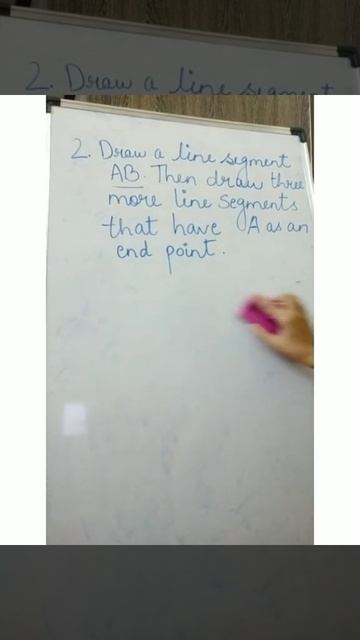 2. Draw a line segment
2. Draw a line segment
AB. Then draw three
more line segments
that have A as an
end point.